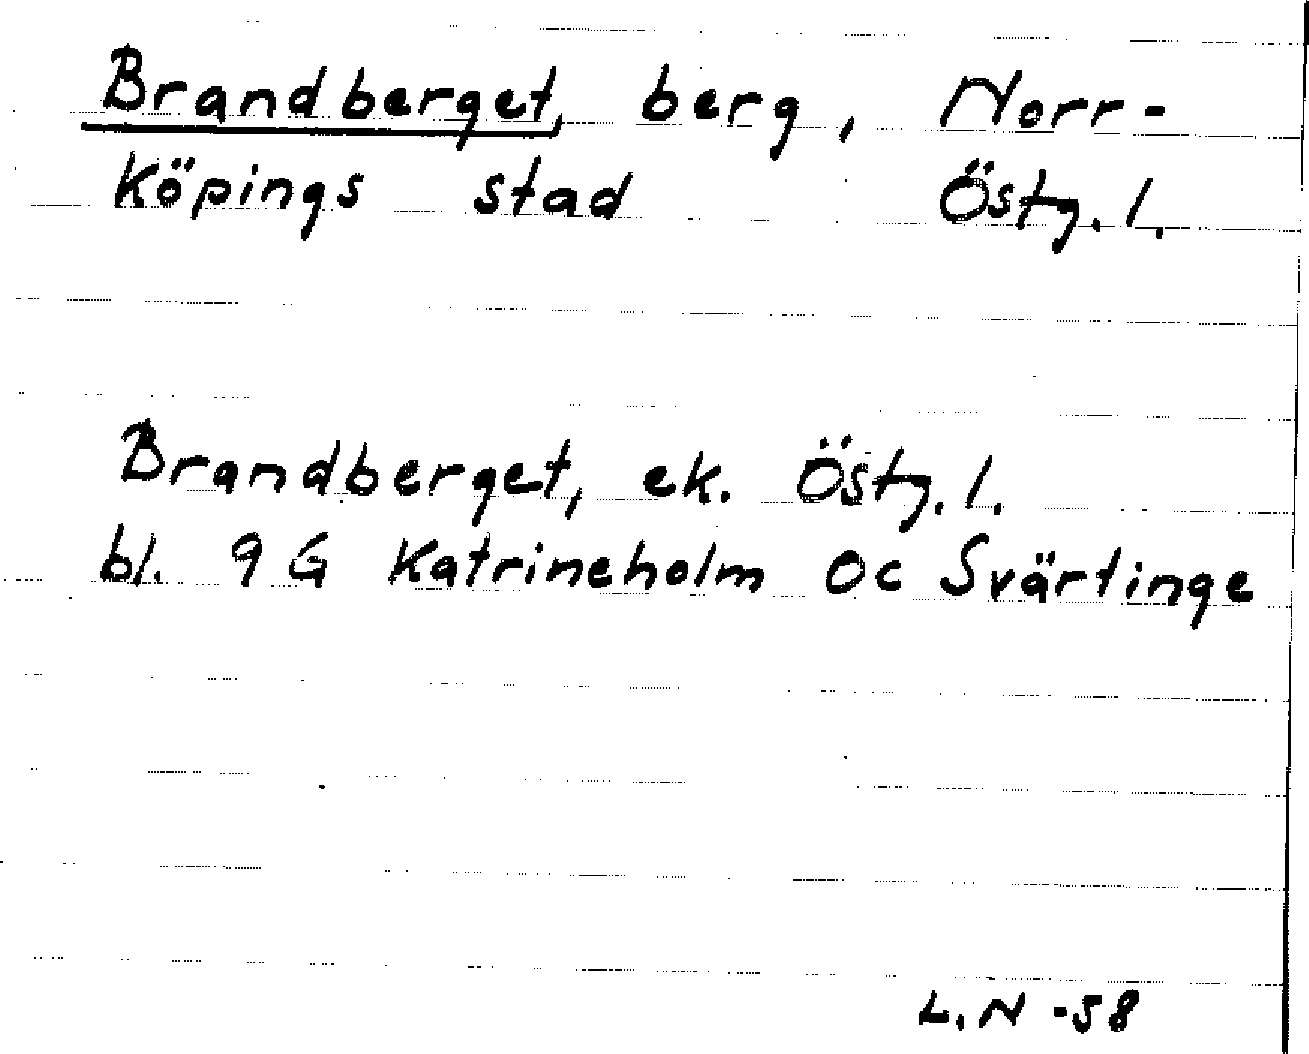 Brandberget, berg, Norr-
köpings stad Östg. l.
Brandberget, ek. Östg. l.
bl. 9 G Katrineholm Oc Svärtinge
L. N -58